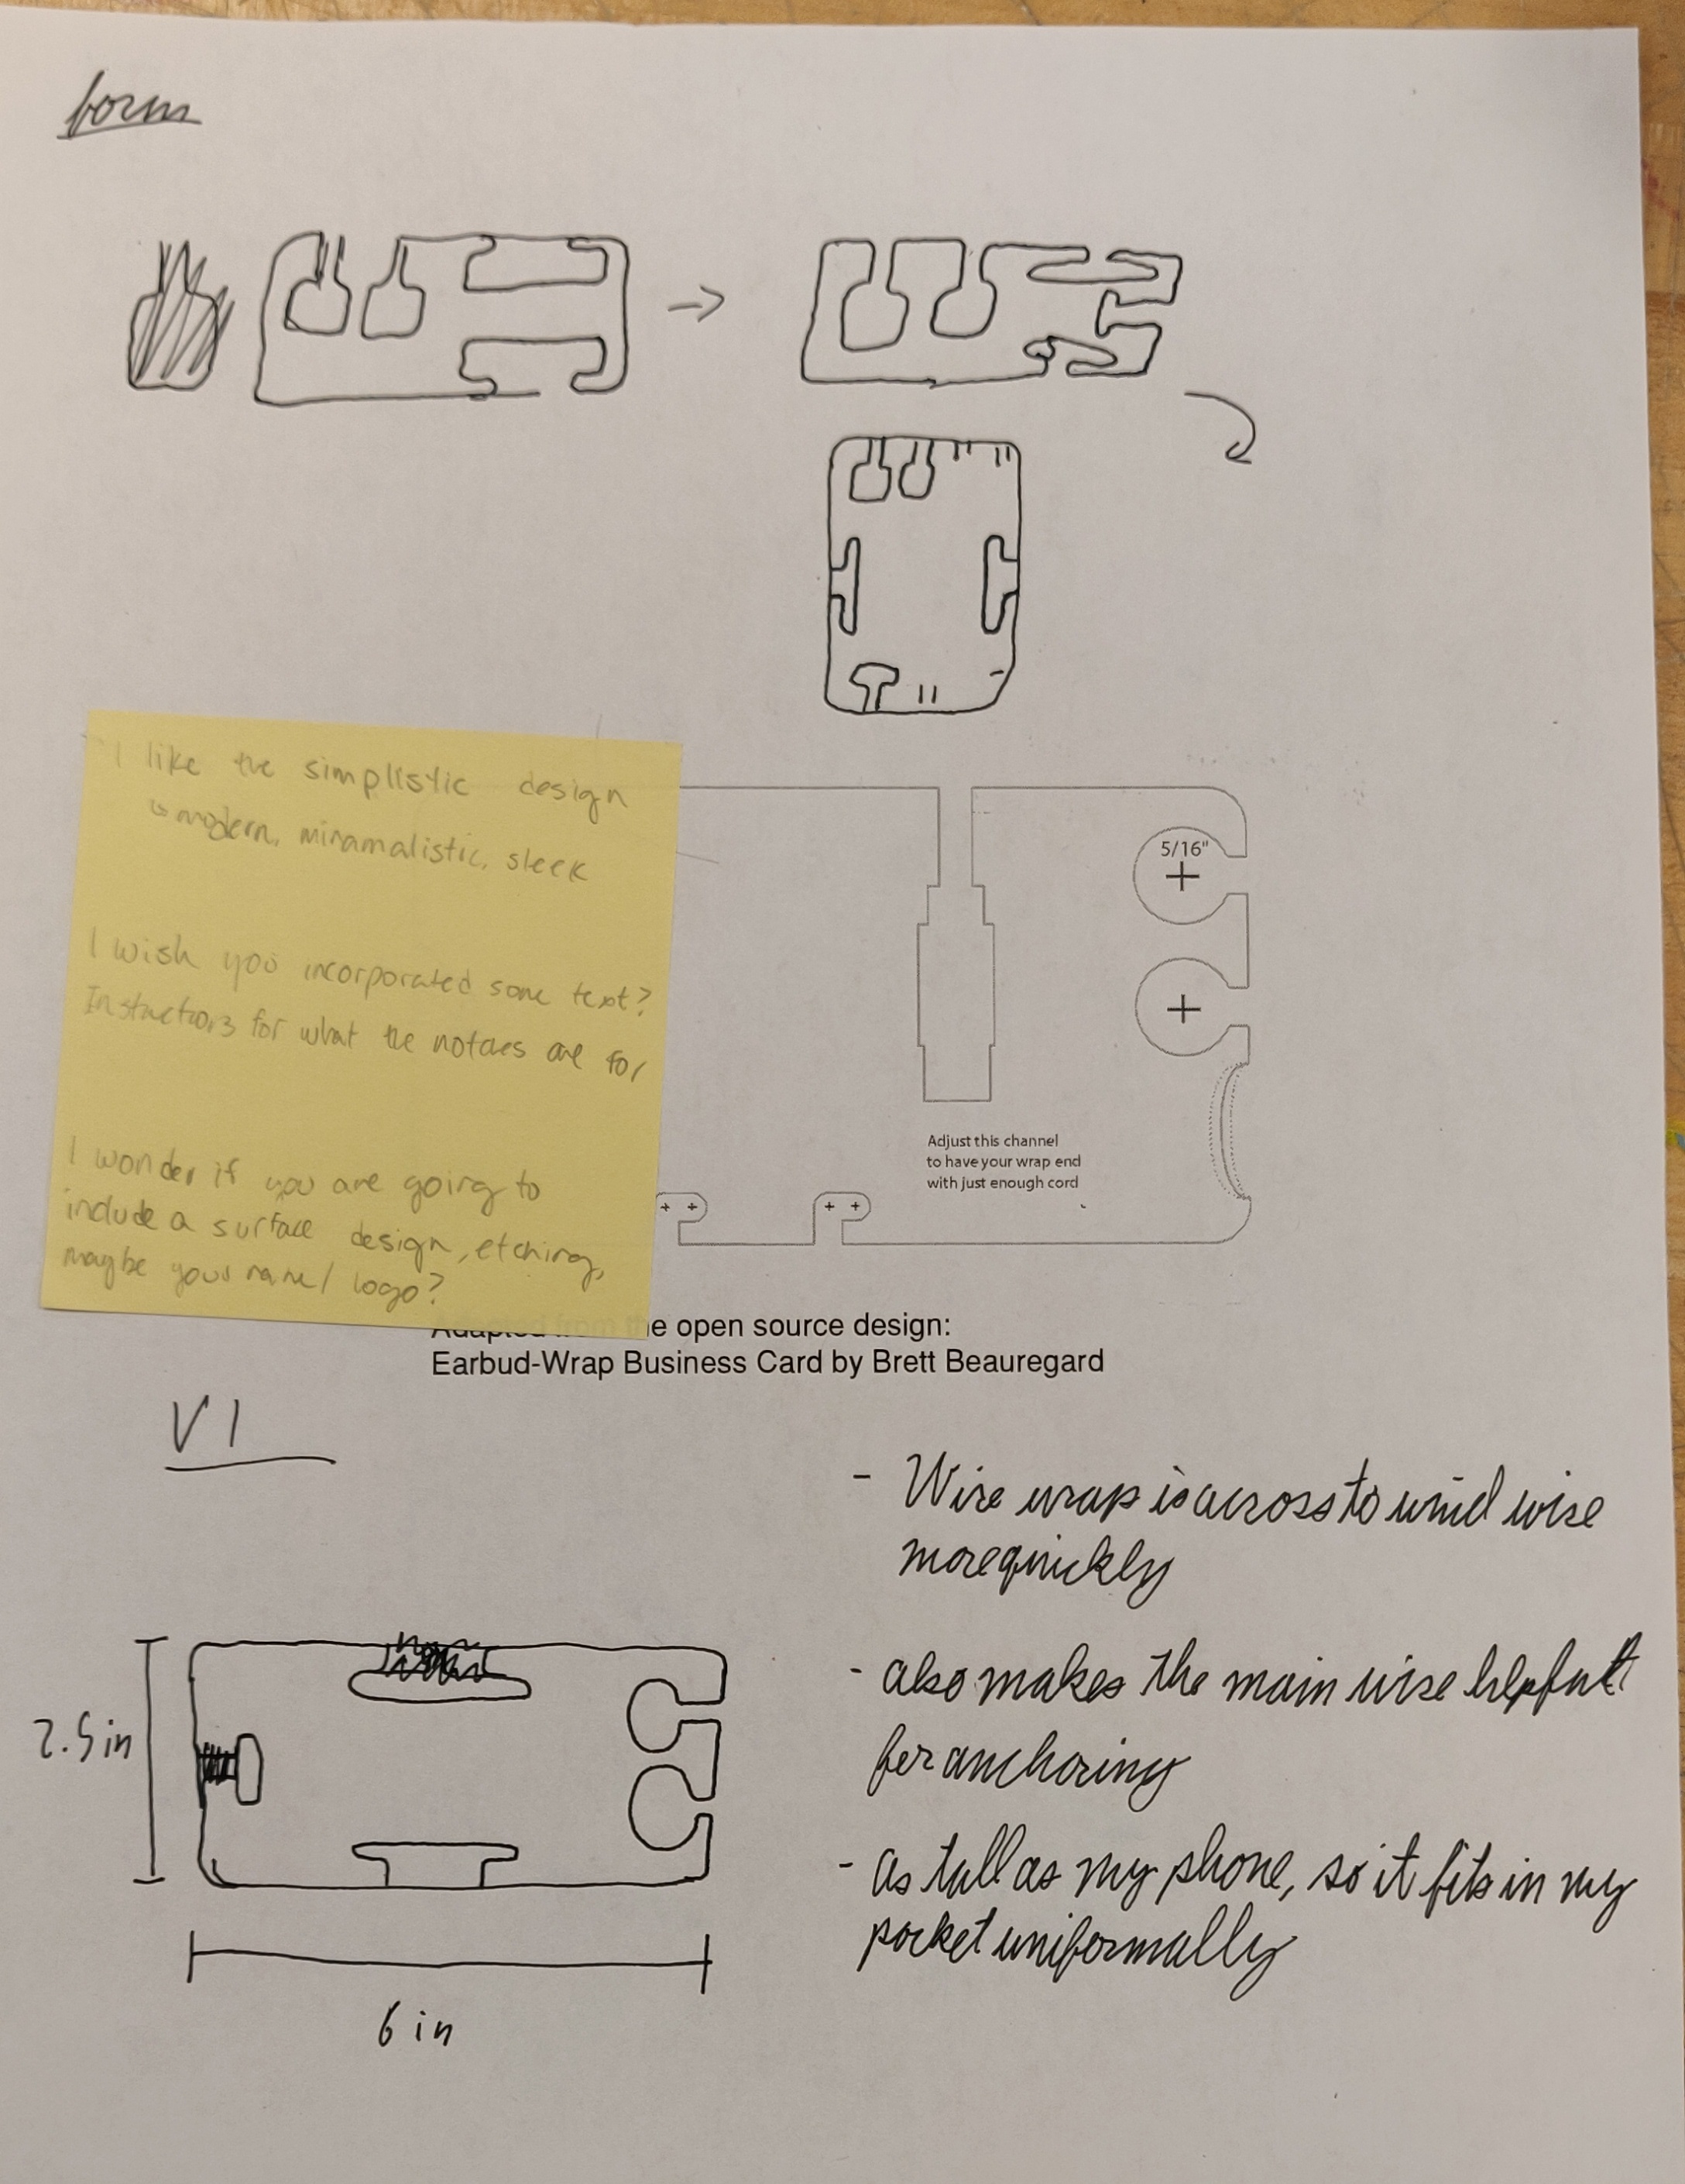 form
I like the simplistic design
↳ modern, minamalistic, sleek
I wish you incorporated some text?
Instructions for what the notches are for
I wonder if you are going to
include a surface design, etching,
maybe your name/ logo?
5/16"
Adjust this channel
to have your wrap end
with just enough cord
Adapted from the open source design:
Earbud-Wrap Business Card by Brett Beauregard
V1
- Wire wrap is across to wind wire
more quickly
- also makes the main wire helpful
for anchoring
- as tall as my phone, so it fits in my
pocket uniformally
2.5in
6 in